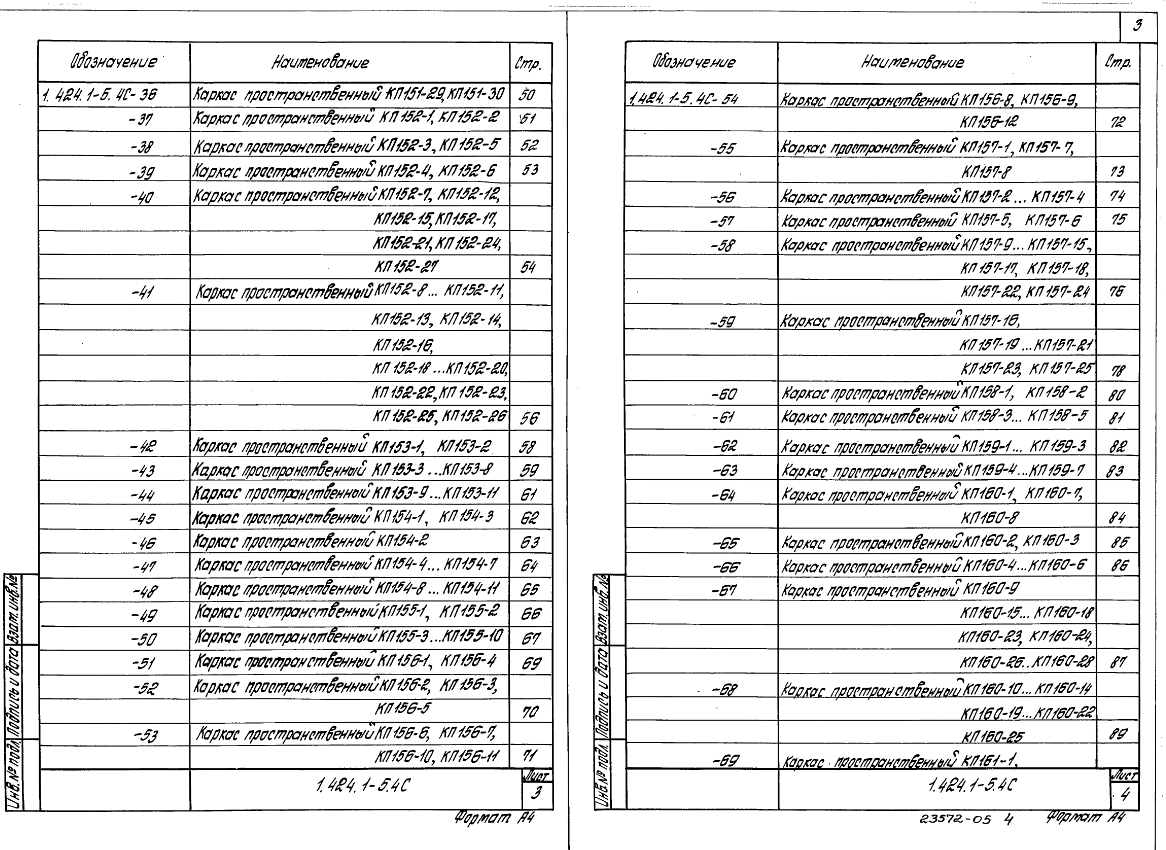 3
Обозначение Наименование Стр.
1.424.1-5.4С-36 Каркас пространственный КП151-29, КП151-30 50
-37 Каркас пространственный КП152-1, КП152-2 51
-38 Каркас пространственный КП152-3, КП152-5 52
-39 Каркас пространственный КП152-4, КП152-6 53
-40 Каркас пространственный КП152-7, КП152-12,
КП152-15, КП152-17,
КП152-21, КП152-24,
КП152-27 54
-41 Каркас пространственный КП152-8... КП152-11,
КП152-13, КП152-14,
КП152-16,
КП152-18...КП152-20,
КП152-22, КП152-23,
КП152-25, КП152-26 56
-42 Каркас пространственный КП153-1, КП153-2 58
-43 Каркас пространственный КП153-3...КП153-8 59
-44 Каркас пространственный КП153-9...КП153-11 61
-45 Каркас пространственный КП154-1, КП154-3 62
-46 Каркас пространственный КП154-2 63
-47 Каркас пространственный КП154-4...КП154-7 64
-48 Каркас пространственный КП154-8...КП154-11 65
-49 Каркас пространственный КП155-1, КП155-2 66
-50 Каркас пространственный КП155-3...КП155-10 67
-51 Каркас пространственный КП156-1, КП156-4 69
-52 Каркас пространственный КП156-2, КП156-3,
КП156-5 70
-53 Каркас пространственный КП156-6, КП156-7,
КП156-10, КП156-11 71
1.424.1-5.4С
Лист
3
Формат А4
Инв.№ подл. Подпись и дата Взат. инв.№
Обозначение Наименование Стр.
1.424.1-5.4С-54 Каркас пространственный КП156-8, КП156-9,
КП156-12 72
-55 Каркас пространственный КП157-1, КП157-7,
КП157-8 73
-56 Каркас пространственный КП157-2...КП157-4 74
-57 Каркас пространственный КП157-5, КП157-6 75
-58 Каркас пространственный КП157-9...КП157-15,
КП157-17, КП157-18,
КП157-22, КП157-24 76
-59 Каркас пространственный КП157-16,
КП157-19...КП157-21
КП157-23, КП157-25 78
-60 Каркас пространственный КП158-1, КП158-2 80
-61 Каркас пространственный КП158-3...КП158-5 81
-62 Каркас пространственный КП159-1...КП159-3 82
-63 Каркас пространственный КП159-4...КП159-7 83
-64 Каркас пространственный КП160-1, КП160-7,
КП160-8 84
-65 Каркас пространственный КП160-2, КП160-3 85
-66 Каркас пространственный КП160-4...КП160-6 86
-67 Каркас пространственный КП160-9
КП160-15...КП160-18
КП160-23, КП160-24,
КП160-26...КП160-28 87
-68 Каркас пространственный КП160-10...КП160-14
КП160-19...КП160-22
КП160-25 89
-69 Каркас пространственный КП161-1,
1.424.1-5.4С
Лист
4
23572-05 4 Формат А4
Инв.№ подл. Подпись и дата Взат. инв.№